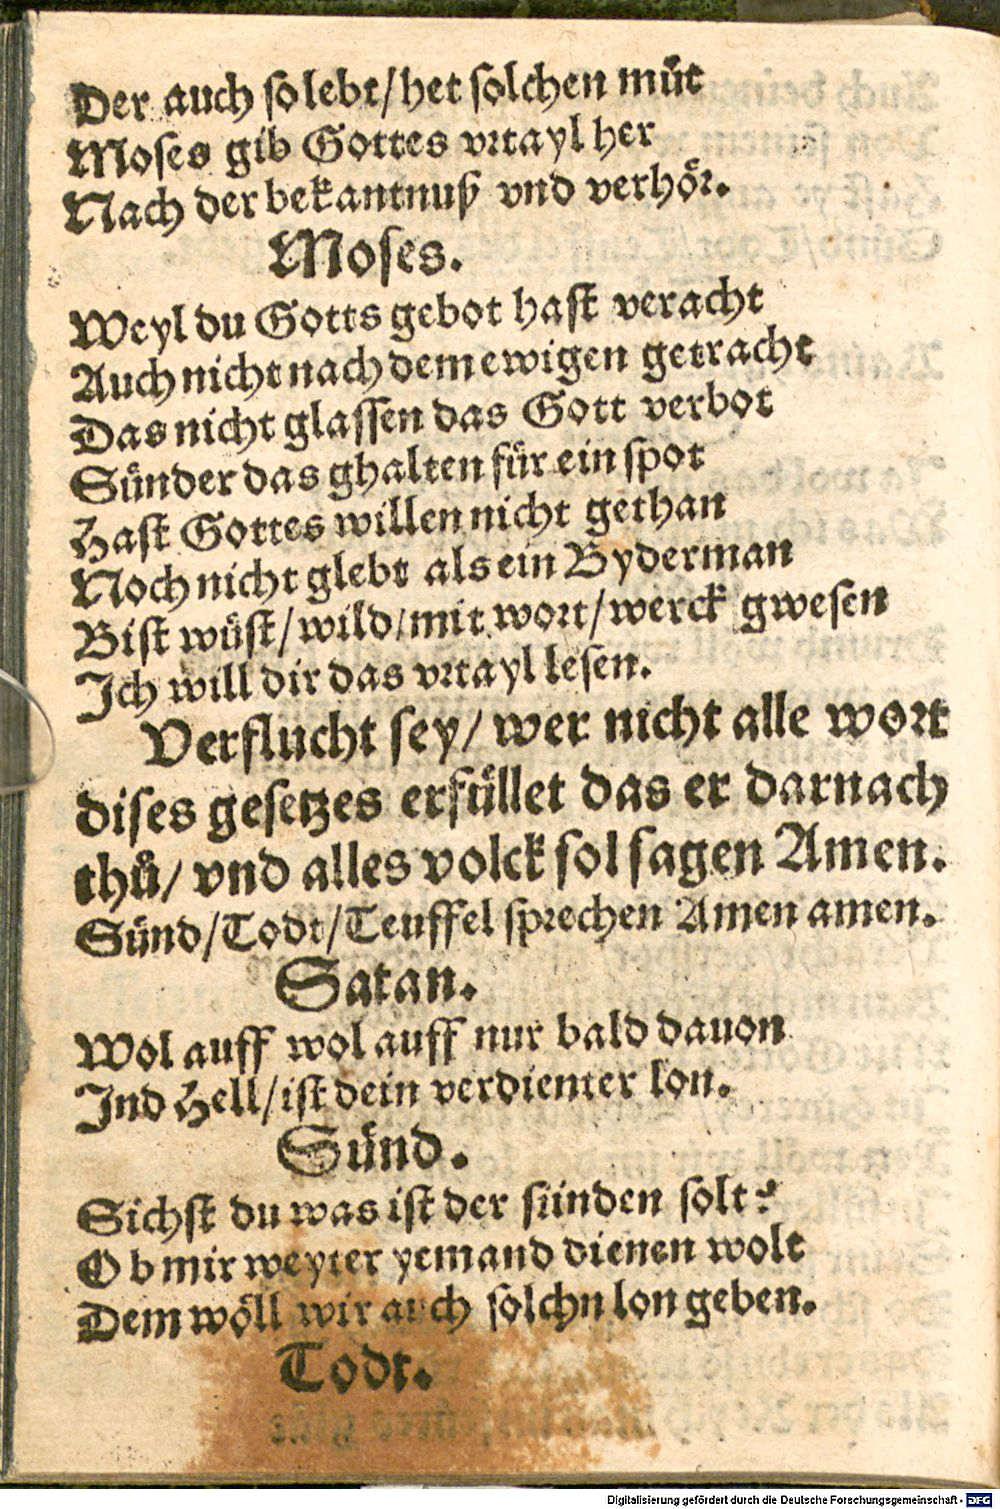 Der auch so lebt/het solchen můt
Moses gib Gottes vrtayl her
Nach der bekantnuß vnd verhör.
Moses.
Weyl du Gotts gebot hast veracht
Auch nicht nach dem ewigen getracht
Das nicht glassen das Gott verbot
Sünder das ghalten für ein spot
Hast Gottes willen nicht gethan
Noch nicht glebt als ein Byderman
Bist wüst/wild/mit wort/werck gwesen
Ich will dir das vrtayl lesen.
Verflucht sey/ wer nicht alle wort
dises gesetzes erfüllet das er darnach
thů/ vnd alles volck sol sagen Amen.
Sünd/Todt/Teuffel sprechen Amen amen.
Satan.
Wol auff wol auff nur bald dauon
Ind Hell/ist dein verdienter lon.
Sünd.
Sichst du was ist der sünden solt?
Ob mir weyter yemand dienen wolt
Dem wöll wir auch solchn lon geben.
Todt.
Digitalisierung gefördert durch die Deutsche Forschungsgemeinschaft - DFG